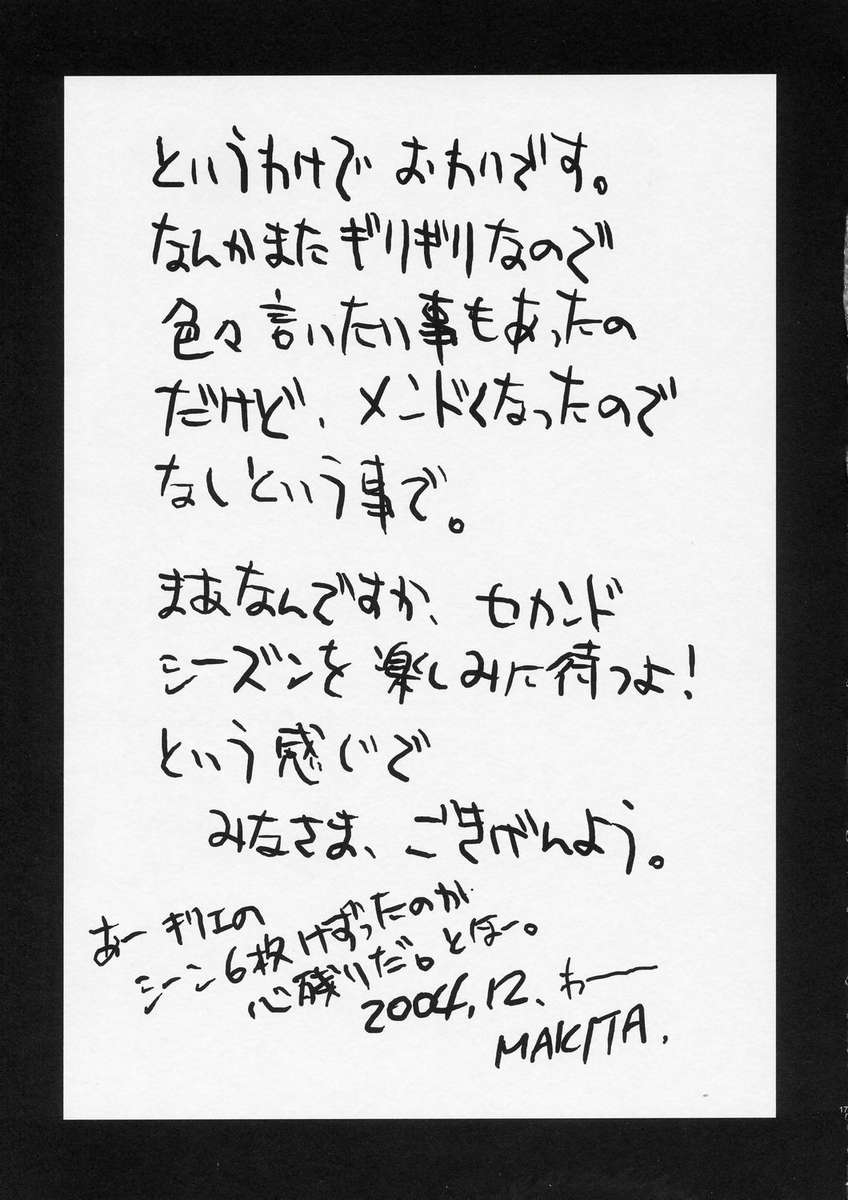 というわけで おわりです。
なんかまたギリギリなので
色々言いたい事もあったの
だけど、メンドくなったので
なしという事で。
まあなんですか、セカンド
シーズンを楽しみに待つよ！
という感じで
みなさま、ごきげんよう。
あー キリエの
シーン6枚けずったのが
心残りだ。とほー。
2004.12. わーー
MAKITA.
17